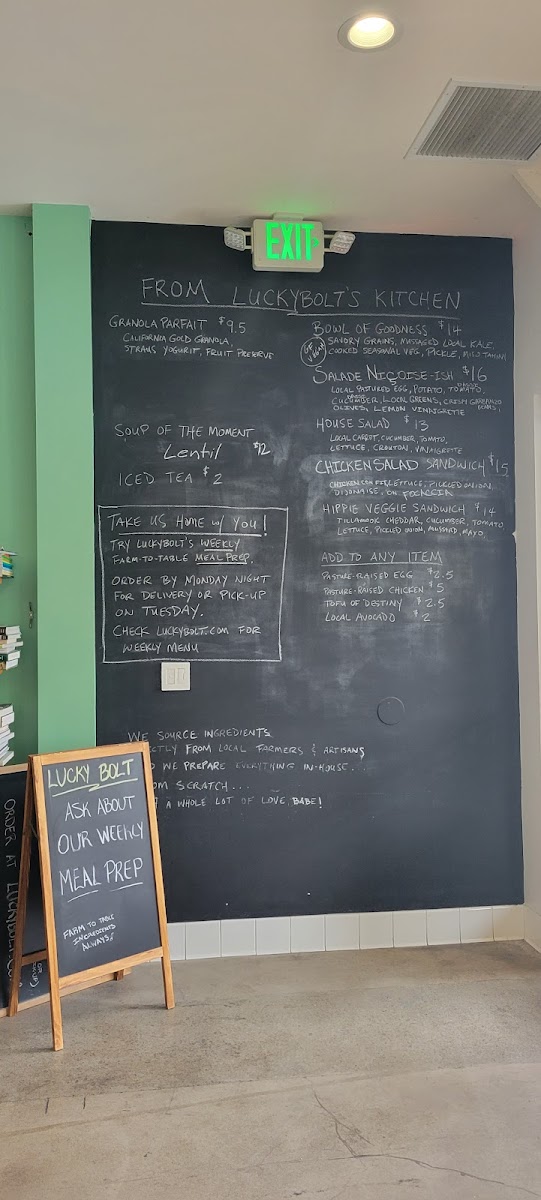 EXIT
FROM LUCKYBOLT'S KITCHEN
GRANOLA PARFAIT $9.5
CALIFORNIA GOLD GRANOLA,
STRAUS YOGURT, FRUIT PRESERVE
SOUP OF THE MOMENT
Lentil $12
ICED TEA $2
TAKE US HOME W/ YOU!
TRY LUCKYBOLT'S WEEKLY
FARM-TO-TABLE MEAL PREP.
ORDER BY MONDAY NIGHT
FOR DELIVERY OR PICK-UP
ON TUESDAY.
CHECK LUCKYBOLT.COM FOR
WEEKLY MENU
BOWL OF GOODNESS $14
GF VEGAN
SAVORY GRAINS, MASSAGED LOCAL KALE,
COOKED SEASONAL VEG, PICKLE, MISO TAHINI
SALADE NIÇOISE-ISH $16
LOCAL PASTURED EGG, POTATO, TOMATO,
CUCUMBER, LOCAL GREENS, CRISPY GARBANZO
OLIVES, LEMON VINAIGRETTE
HOUSE SALAD $13
LOCAL CARROT, CUCUMBER, TOMATO,
LETTUCE, CROUTON, VINAIGRETTE
CHICKEN SALAD SANDWICH $15
LETTUCE, PICKLED ONION,
DIJONAISE, ON FOCACCIA
HIPPIE VEGGIE SANDWICH $14
TILLAMOOK CHEDDAR, CUCUMBER, TOMATO
LETTUCE, PICKLED ONION, MUSTARD, MAYO
ADD TO ANY ITEM
PASTURE-RAISED EGG $2.5
PASTURE-RAISED CHICKEN $5
TOFU OF DESTINY $2.5
LOCAL AVOCADO $2
WE SOURCE INGREDIENTS
CTLY FROM LOCAL FARMERS & ARTISANS
D WE PREPARE EVERYTHING IN-HOUSE...
OM SCRATCH...
A WHOLE LOT OF LOVE, BABE!
LUCKY BOLT
ASK ABOUT
OUR WEEKLY
MEAL PREP
FARM TO TABLE
INGREDIENTS
ALWAYS!
ORDER AT LUCKYBOLT.CO